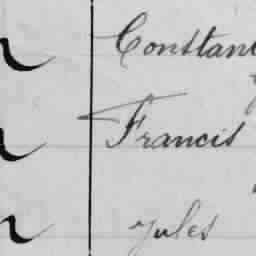 Constan
Francis
Jules